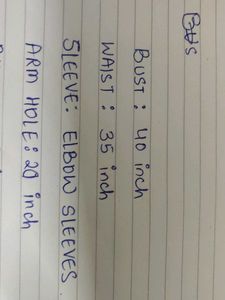 BUST : 40 inch
WAIST : 35 inch
SLEEVE: ELBOW SLEEVES.
ARM HOLE: 20 inch